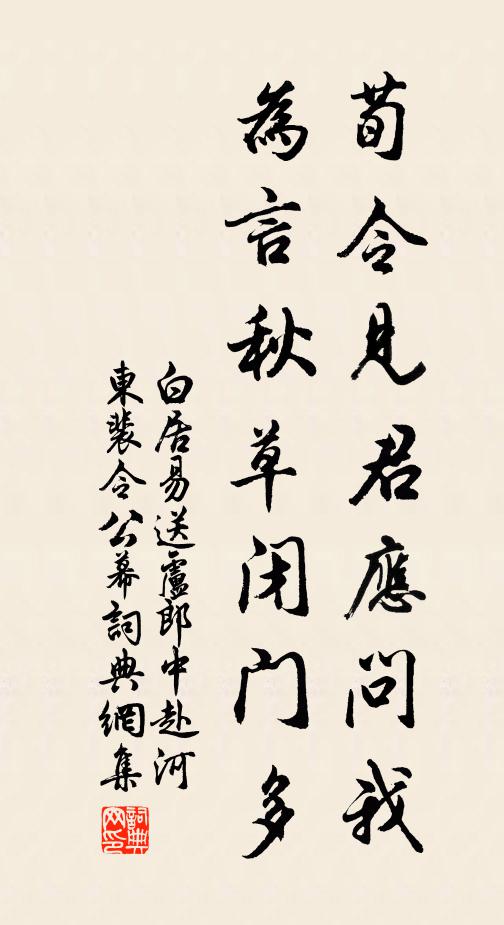 荀令見君應問我
為言秋草閉門多
白居易送盧郎中赴河
東裴令公幕詞典網集
詞典網印